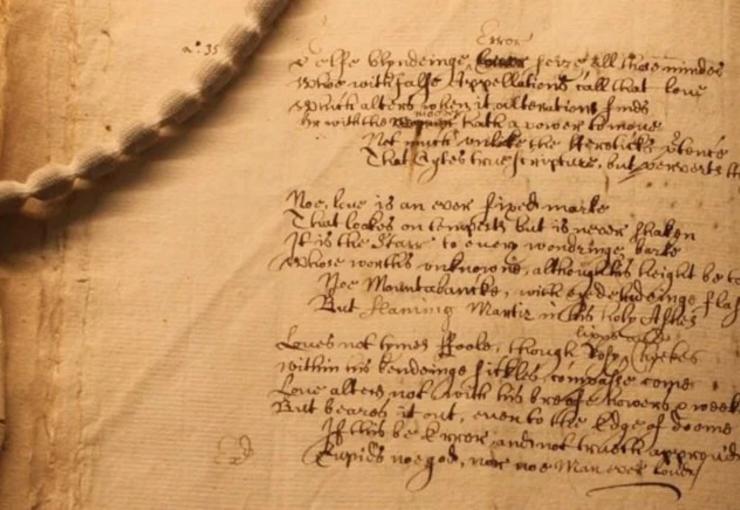 Error
n:° 35
Selfe blyndeinge seize all those mindes
Whoe with falsе Appellations call that love
Which alters when it alterations finds
Or with the mover hath a power to move
Not much unlike the Hereticks
That Cytes true scripture, but perverts
Noe, love is an ever fixed marke
That lookes on tempests but is never shaken
It is the Starr to every wandringe barke
Whose worths unknowne, although his height be
Noe Mountabancke, with
But flaming Martir in his holy Ashes
lipps and
Loves not tymes Foole, though Rosy Cheekes
within his bendeinge sickles compasse come
Love alters not with his breefe howers & weekes
But beares it out, even to the Edge of doome
If this be Error and not truth approv'd
Cupids noe god, nor noe Man ever lov'd